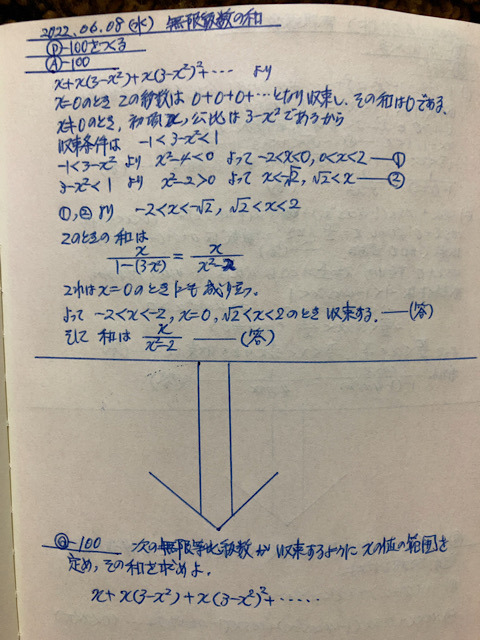 2022.06.08(水) 無限級数の和
Ⓟ-100をつくる
Ⓐ-100
x+x(3-x²)+x(3-x²)²+… より
x=0のとき この級数は 0+0+0+…となり収束し、その和は0である、
x≠0のとき、初項x、公比は3-x²であるから
収束条件は -1<3-x²<1
-1<3-x² より x²-4<0 よって -2<x<0, 0<x<2 —①
3-x²<1 より x²-2>0 よって x<-√2, √2<x —②
①,②より -2<x<-√2, √2<x<2
このときの和は
x/1-(3-x²) = x/x²-2
これは x=0のときにも成り立つ。
よって -2<x<-2, x=0, √2<x<2のとき 収束する. —(答)
そして 和は x/x²-2 —(答)
Ⓠ-100 次の無限等比級数が収束するように xの値の範囲を
定め,その和を求めよ.
x+x(3-x²)+x(3-x²)²+……